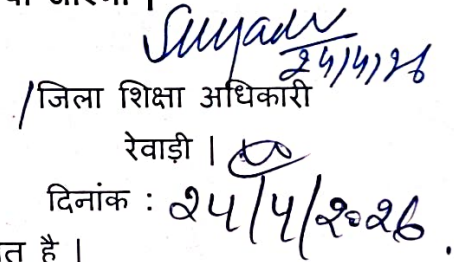 24/4/26
/जिला शिक्षा अधिकारी
रेवाड़ी |
दिनांक : 24/4/2026 .
है |